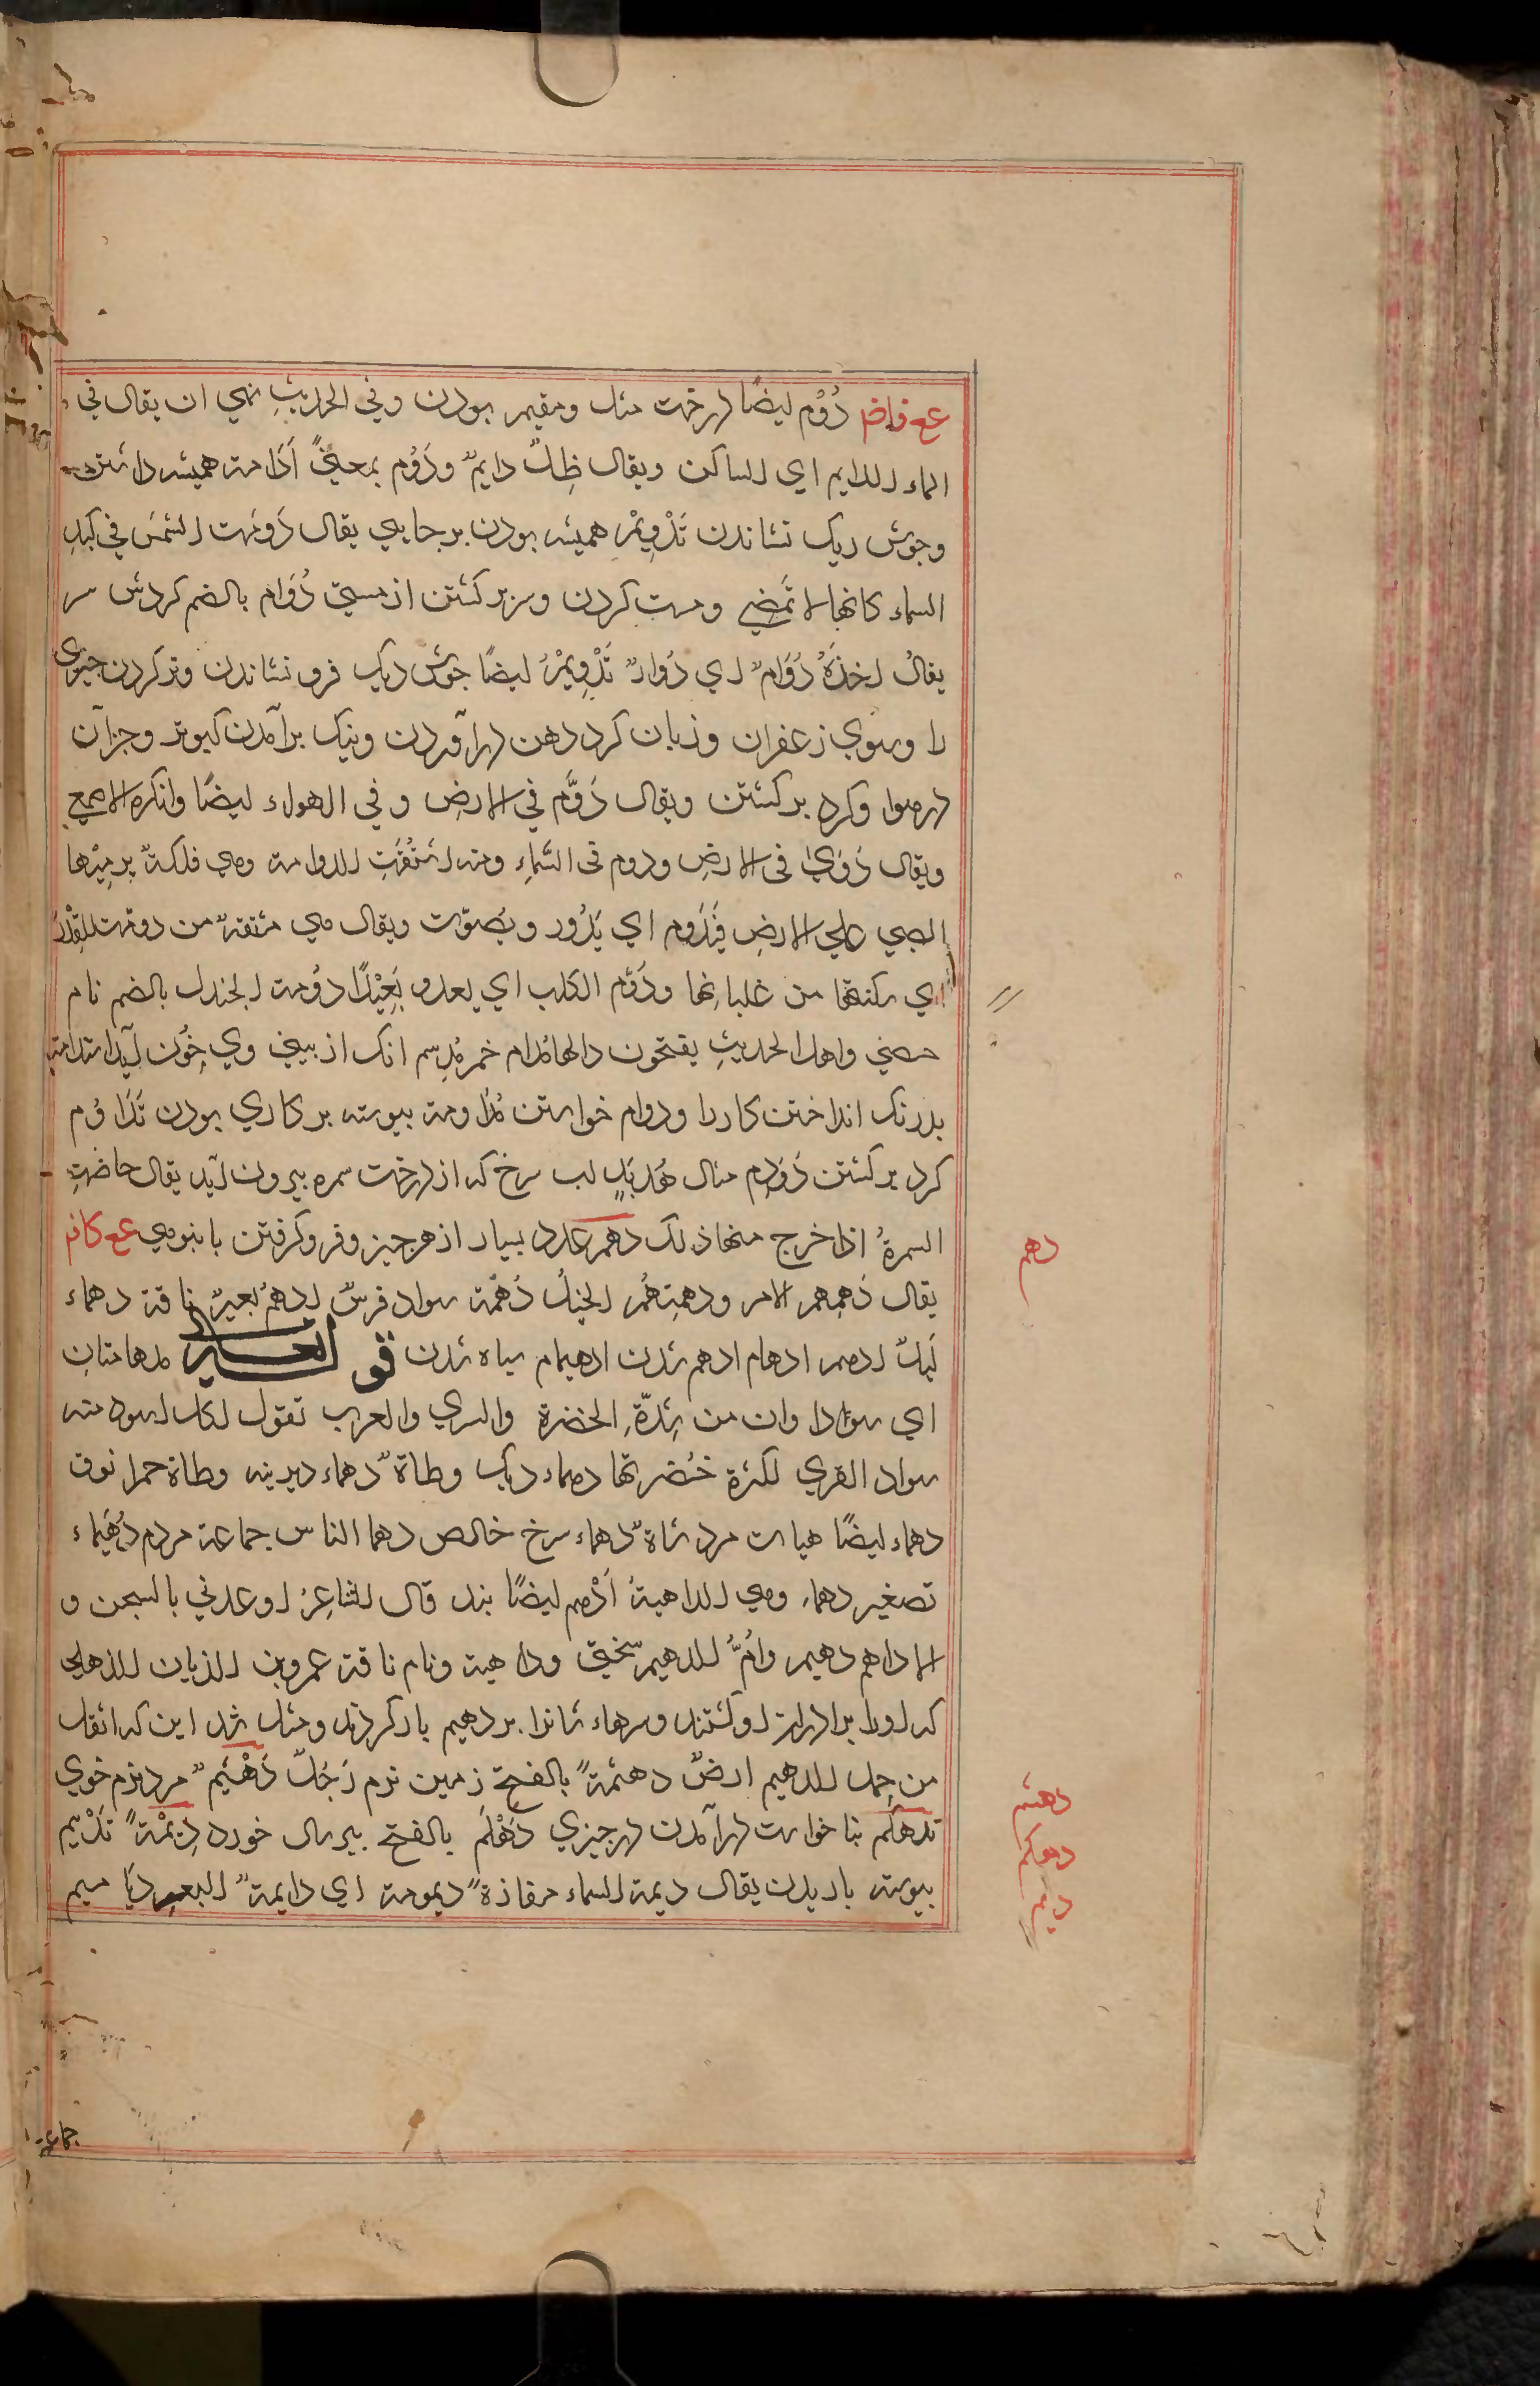 دُوْم ايضًا درخت مقل ومقيم بودن وفي الحديثِ نهي ان يقال في
الماء الدايم اي الساكن ويقال ظِلٌّ دايمٌ ودَوُم بمعنيً اَدَامة هميشه داشتن
وجوش ديك نشاندن تَدْوِيْم هميشه بودن برجايي يقال دَوّمت الشمسَ في كبدِ
السماء كانها لا تَمضِي ومست كردن وسر بر كشتن از مستي دُوَام بالضم كردش سر
يقالُ اخذَهُ دُوَامٌ اي دُوارٌ تَدْوِيْمُ ايضًا جوش ديك فرو نشاندن وتر كردن چيزى
را وسوي زعفران وزبان كرد دهن درآوردن ونيك برآمدن كبوتر وجزآن
درهوا وكرد بركشتن ويقال دَوَّم في الارضِ وفي الهواء ايضًا وانكره الاصمعي
ويقال دَوّيٰ فى الارضِ ودوم فى السّماءِ ومنه اشتُقّتِ الدوامة وهي فلكةٌ يرميْها
الصبي علي الارضِ فتَدُوم اي يَدُور ويُصوّت ويقال هي مشتقةٌ من دومت القِدْرَ
اي سكنتها من غليانِها ودَوّم الكلب اي يعدو بَعِيْدًا دُومة الجندل بالضم نام
حصني واهل الحديثِ يفتحون دالها مُدام خمر مُدِيم انك از بيني وي خُون آيد استدامة
بدرنك انداختن كار را ودوام خواستن مُدَاومة پيوسته بر كاري بودن تَدَاوُم
كرد بركشتن دُوَدِم مثال هُدَبِدٍ لب سرخ كه از درخت سمره بيرون آيد يقال حاضتِ
السمرةُ اذا خرج منها ذلك دهم عدد بسيار از هر چيز وفروكرفتن بانبوهي عع كافم
يقال دَهِمهم الامر ودهمتهُم الخيلُ دُهْمة سواد فرسٌ ادهمُ بعيرٌ ناقة دهماء
ادهم ادهام ادهم شدن ادهيمام سياه شدن قوله تعالى مدهامتانِ
اي سوادا وان من شِدّةِ الخضرة والري والعرب تقول لكل اسود منه
سواد القري لكثرة خُضرتها دهماء ديك وطاةٌ دهماء ديرينه وطاة حمرا نوق
دهماء ايضًا هيات مرد شاةٌ دهماء سرخ خالص دهما الناس جماعة مردم دُهَيْماء
تصغير دهماء وهي الداهيةُ اَدْهم ايضًا بند قال الشاعِرُ اوعدني بالسجن و
الاداهم دهيم وامُّ الدهيم سختي وداهية ونام ناقة عمروبن الذبان الذهلي
كه اورا برادران اوكشتند وسرهاء شانرا بر دهيم باركردند ومثل شد اين كه اثقل
من حِمل الدهيم ارضٌ دهثمةٌ بالفتح زمين نرم رَجُلٌ دَهْثَمٌ مرد نرم خوي
تدهكم بنا خواست درآمدن درچيزي دَهْلَم بالفتح بيرسال خورد دِيْمةٌ تَدْيِيم
پيوسته باريدن يقال ديمت السماء مفازةٌ ديمومة اي دايمةُ البعدِ دَيَاميم
دهم
دهثم
دهكم
ديم
جماعة